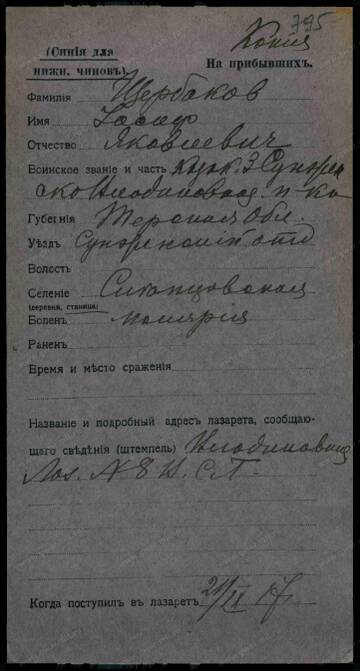 795
Копия
(Синія для
нижн. чиновъ).
На прибывшихъ.
Фамилія Щербаков
Имя
Отчество Яковлевич
Воинское званіе и часть Казак. 3 Сунжен
ско Владикавказ. п-ка
Губернія Терская Обл.
Уѣздъ Сунженский отд
Волость
Селеніе
(деревня, станица)
Боленъ малярия
Раненъ
Время и мѣсто сраженія
Названіе и подробный адресъ лазарета, сообщаю-
щаго свѣдѣнія (штемпель) Владикавказ
Лаз. № 8 В. С. Г.
Когда поступилъ въ лазаретъ 17 г.